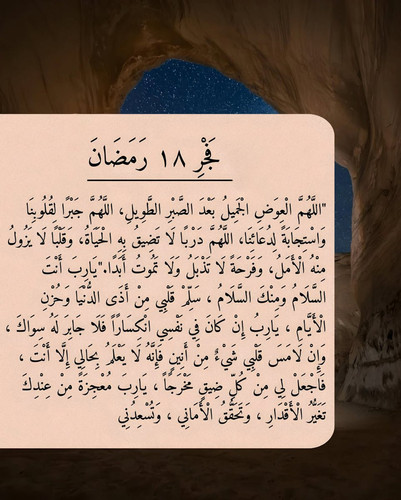 فَجْرِ ١٨ رَمَضَانَ
"اللَّهُمَّ الْعِوَضِ الْجَمِيلُ بَعْدَ الصَّبْرِ الطَّوِيلِ، اللَّهُمَّ جَبْرًا لِقُلُوبِنَا
وَاسْتِجابَةً لِدُعَائِنا، اللَّهُمَّ دَرْبًا لَا تَضِيقُ بِهِ الْحَيَاةُ، وَقَلْبًا لَا يَزُولُ
مِنْهُ الْأَمَلُ، وَفَرْحَةً لَا تَذْبَلُ وَلَا تَمُوتُ أَبَدًا."يَارِبَ أَنْتَ
السَّلَامُ وَمِنْكَ السَّلَامُ ، سَلِّمْ قَلْبِي مِنْ أَذَى الدُّنْيَا وَحُزْنِ
الْأَيَّامِ ، يَارِبُ إِنْ كَانَ فِي نَفْسِي انْكِسَارًا فَلَا جَابِر لَهُ سِوَاكَ ،
وَإِنْ لَامَسَ قَلْبِي شَيْءٌ مِنْ أَنِينٍ فَإِنَّهُ لَا يَعْلَمُ بِحَالِي إِلَّا أَنْتَ ،
فَاجْعَلْ لِي مِنْ كُلّ ضِيقٍ مَخْرَجًا ، يَارَب مُعْجِزَةً مِنْ عِنْدِكَ
تَغَيُّرُ الْأَقْدَارِ ، وَتَحَقُّقُ الْأَمَانِي ، وَتُسْعِدُنِي